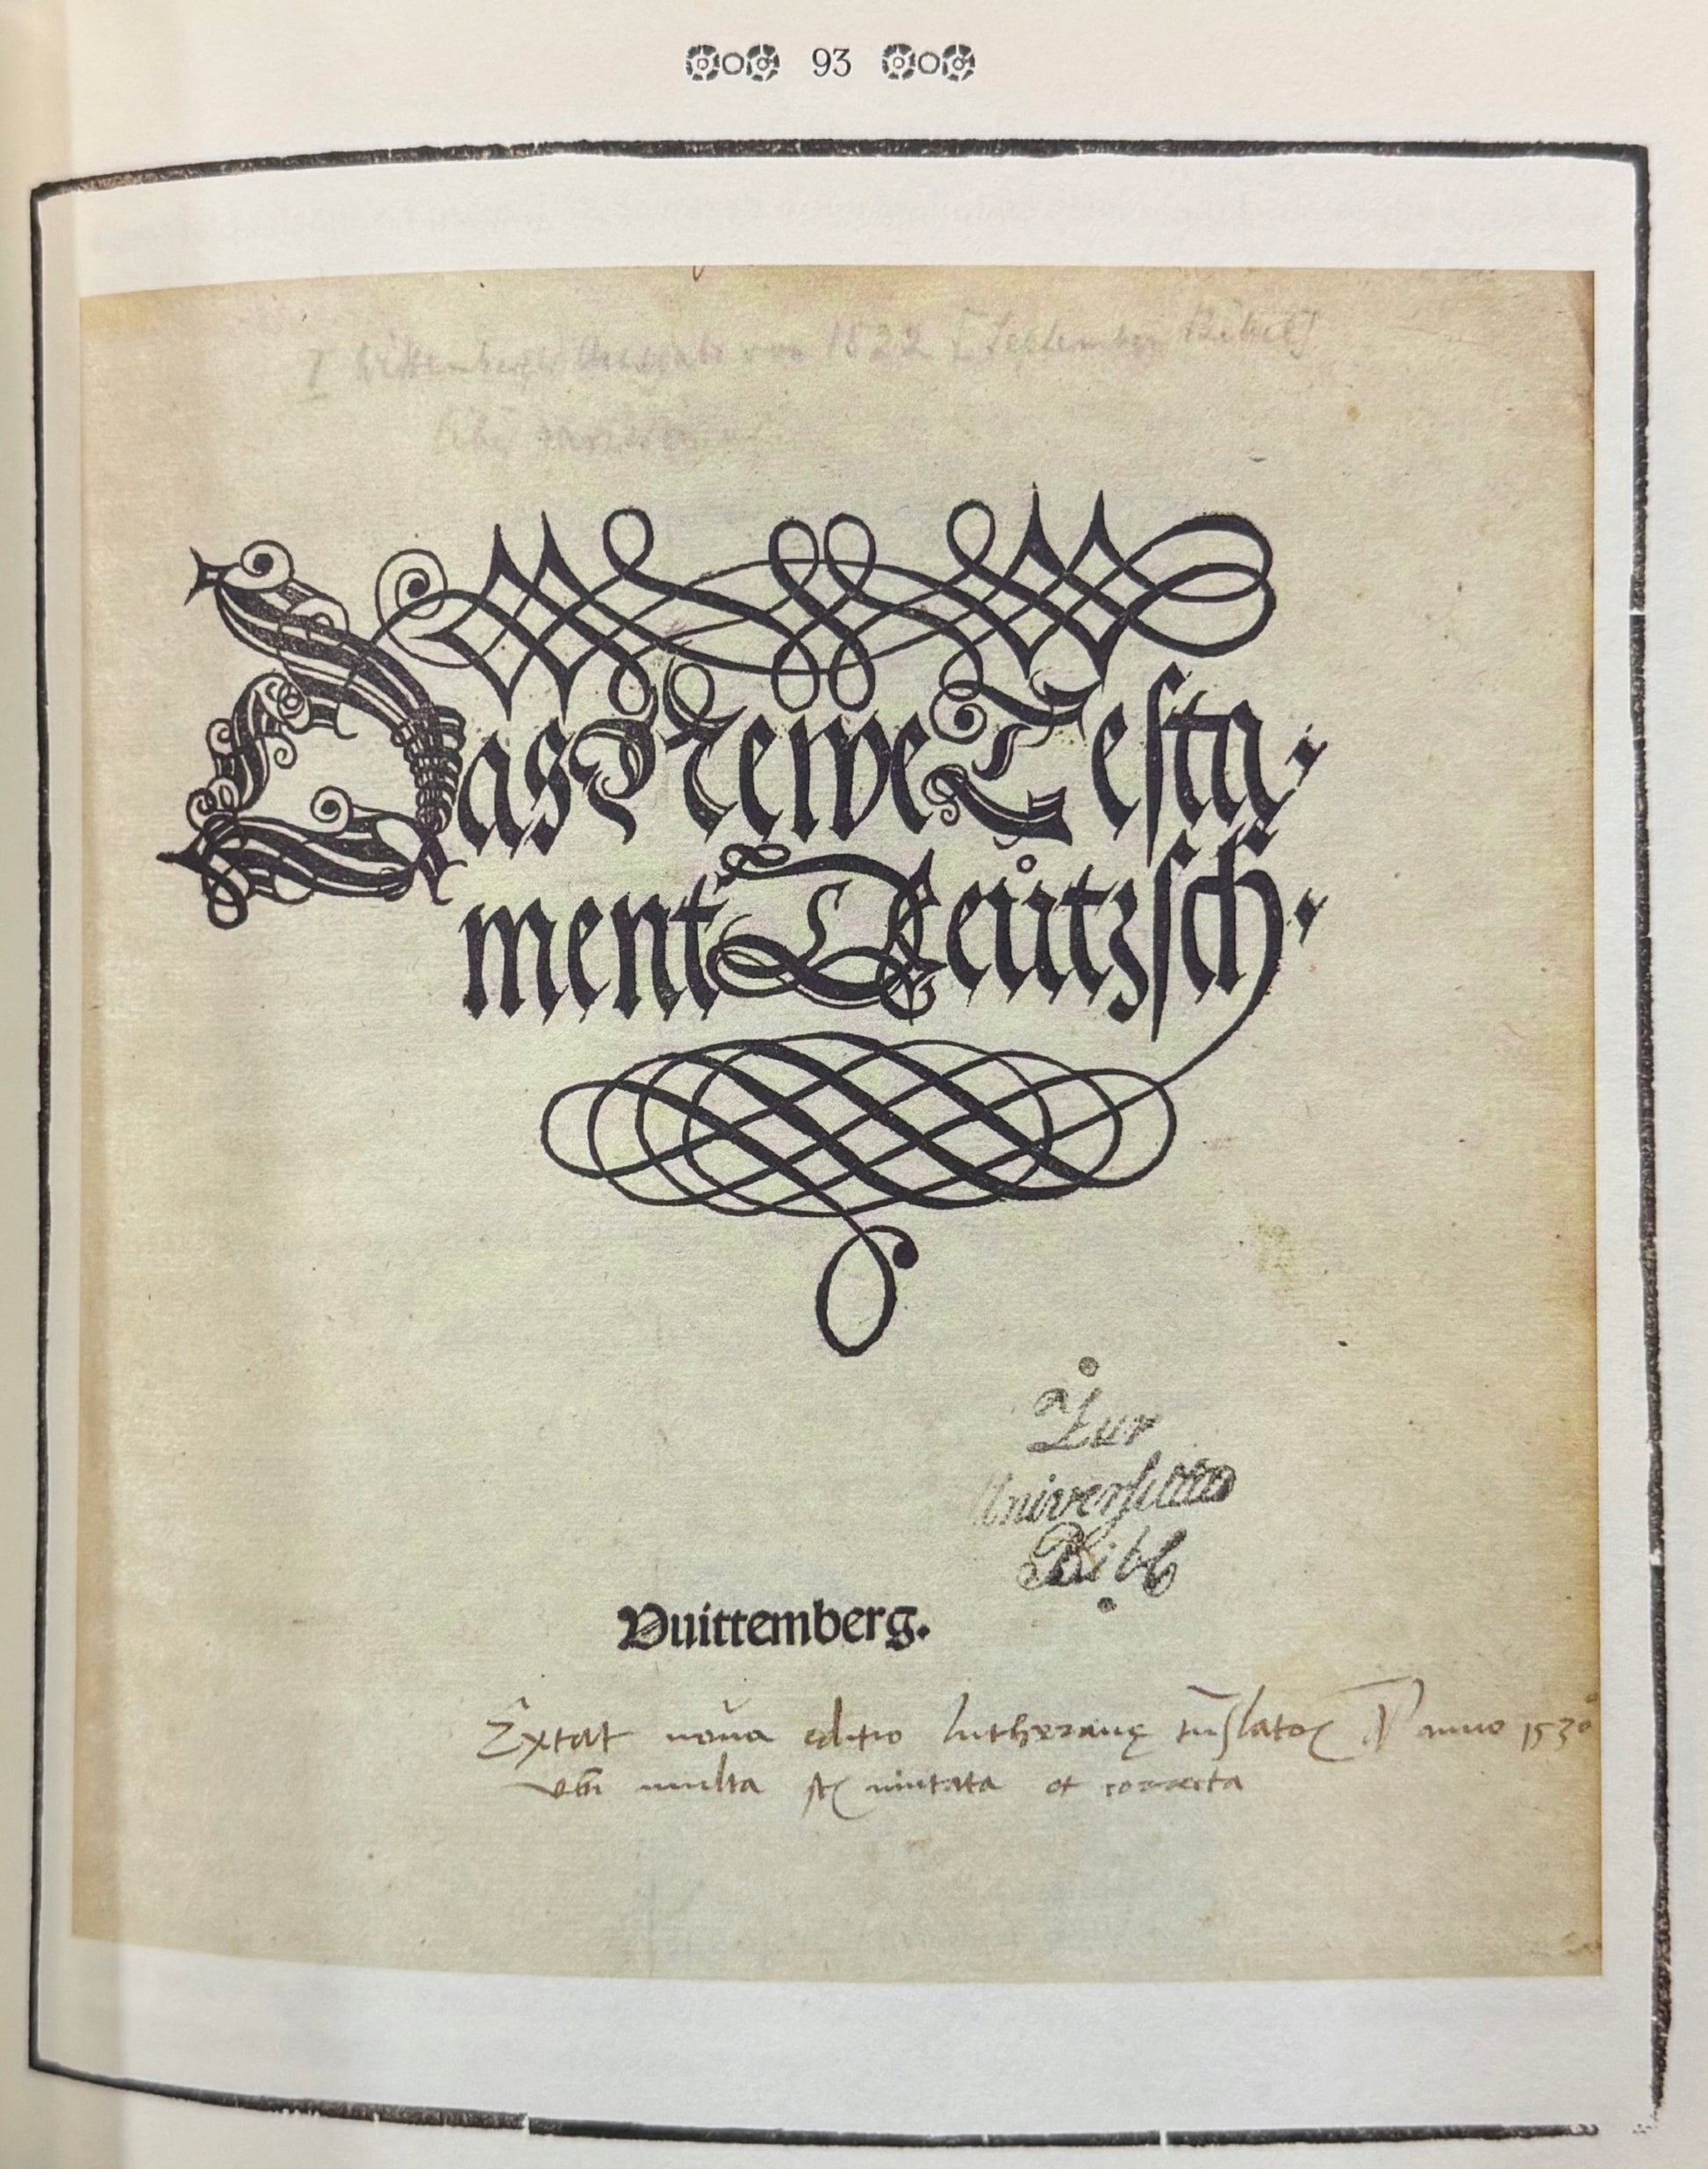 93
I Wittenberger Ausgabe von 1522 [September Bibel]
Das Newe Testa-
ment Deůtzsch.
Zur
Universitäts
Bibl
Vuittemberg.
Extat noua editio lutheranę anno 1530
vbi multa mutata et correcta